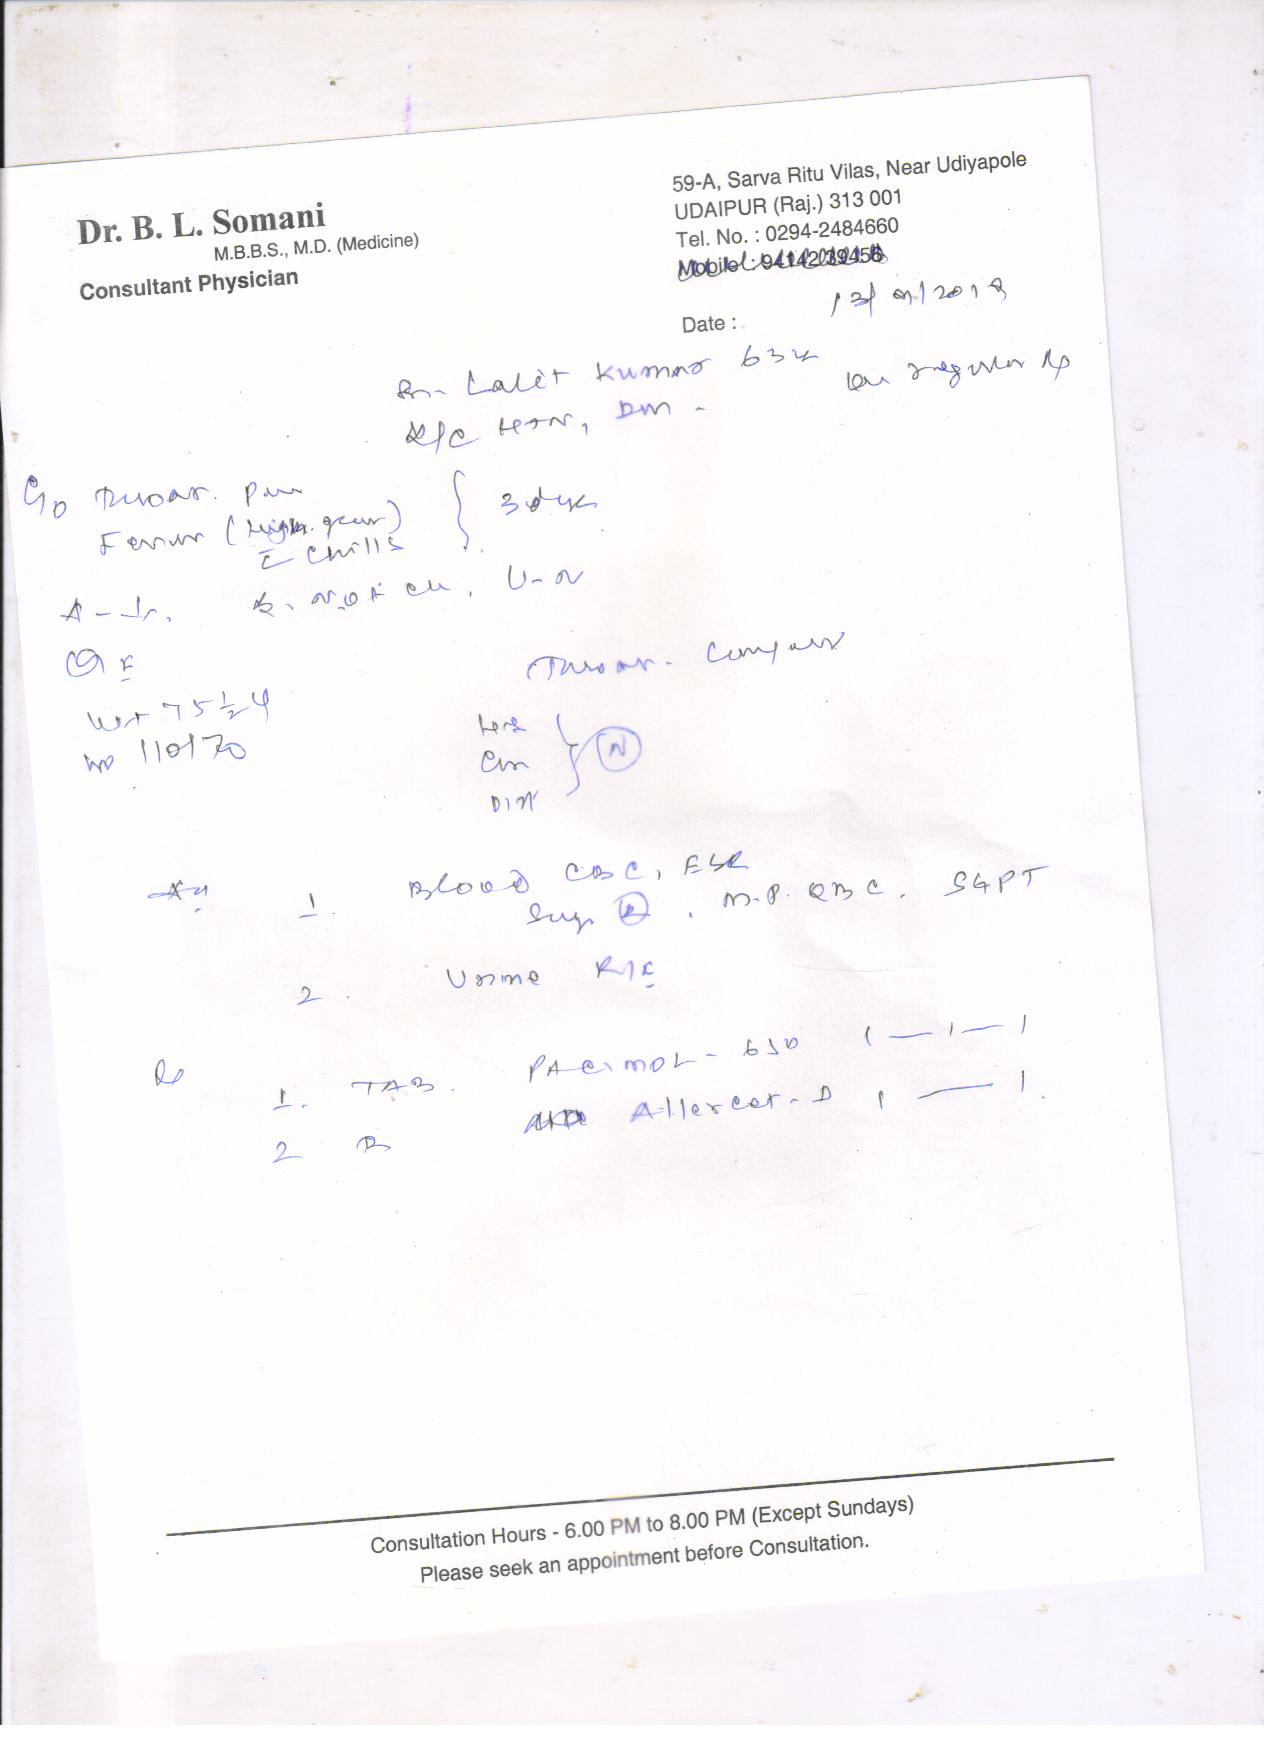 Dr. B. L. Somani
M.B.B.S., M.D. (Medicine)
Consultant Physician
59-A, Sarva Ritu Vilas, Near Udiyapole
UDAIPUR (Raj.) 313 001
Tel. No. : 0294-2484660
Mobile : 94142 39456
Date :
Lalit Kumar 63
K/C HTN, DM -
irregular Rp
C/o Throat. Pain
Fever (high
c Chills
3 days
O/E
Throat - Congest
Wt 75 1/2
BP 110/70
N
1. Blood CBC, ESR
Sug R, M.P. QBC. SGPT
2. Urine R/E
Rp
1. TAB. PACIMOL - 650 1 — 1 — 1
2 Allercet - D 1 — 1.
Consultation Hours - 6.00 PM to 8.00 PM (Except Sundays)
Please seek an appointment before Consultation.